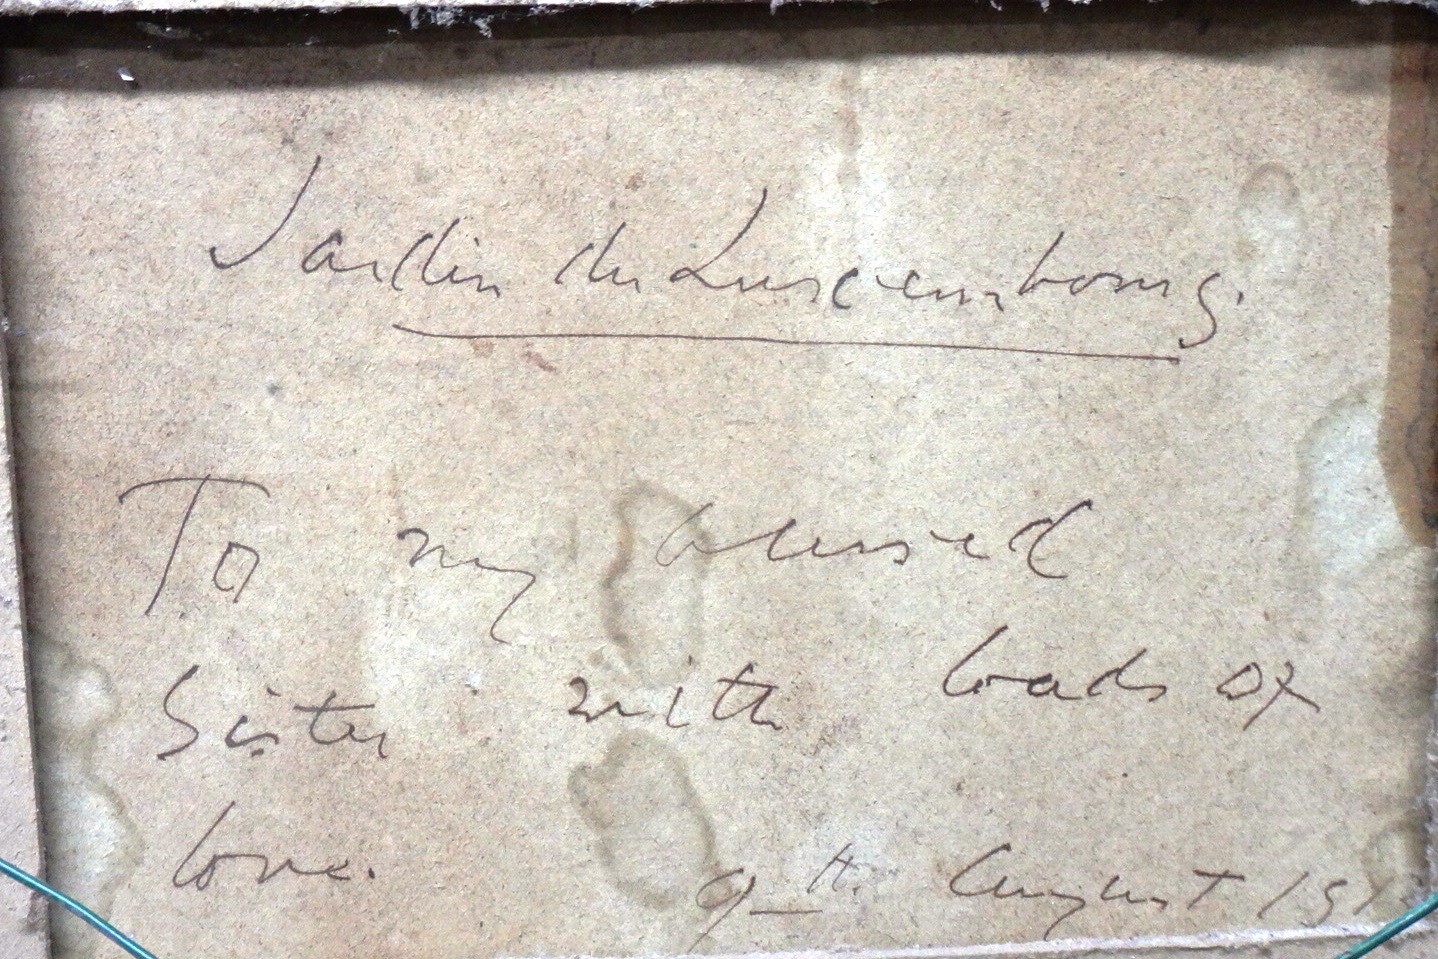 Jardin du Luxembourg.
To my blessed
Sister with loads of
love.
9th. August